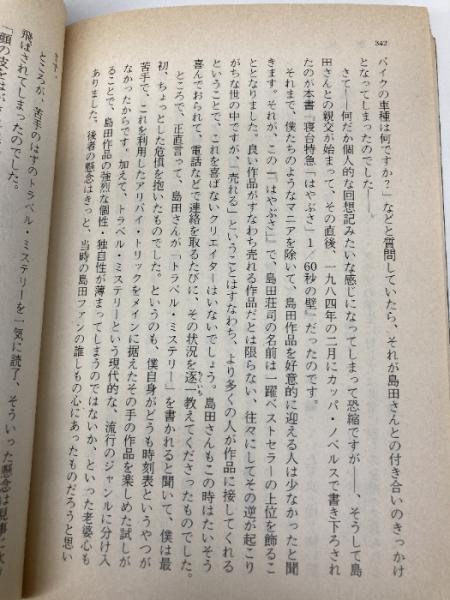 342
バイクの車種は何ですか？」などと質問していたら、それが島田さんとの付き合いのきっかけ
となってしまったのでした――。
さて――何だか個人的な回想記みたいな感じになってしまって恐縮ですが――、そうして島
田さんとの親交が始まって、その直後、一九八四年の二月にカッパ・ノベルスで書き下ろされ
たのが本書『寝台特急「はやぶさ」1／60秒の壁』だったのです。
それまで、僕たちのようなマニアを除いて、島田作品を好意的に迎える人は少なかったと聞
きます。それが、この「「はやぶさ」」で、島田荘司の名前は一躍ベストセラーの上位を飾るこ
ととなりました。良い作品がすなわち売れる作品だとは限らない、往々にしてその逆が起こり
がちな世の中ですが、「売れる」ということはすなわち、より多くの人が作品に接してくれる
ということで、これを喜ばないクリエイターはいないでしょう。島田さんもこの時はたいそう
喜んでおられて、電話などで連絡を取るたびに、その状況を逐一教えてくださったものでした。
ちくいち
ところで、正直言って、島田さんが「トラベル・ミステリー」を書かれると聞いて、僕は最
初、ちょっとした危惧を抱いたものでした。というのも、僕自身がどうも時刻表というやつが
苦手で、これを利用したアリバイ・トリックをメインに据えたその手の作品を楽しめた試しが
なかったからです。加えて、トラベル・ミステリーという現代的な、流行のジャンルに分け入
ることで、島田作品の強烈な個性・独自性が薄まってしまうのではないか、といった老婆心も
ありました。後者の懸念はきっと、当時の島田ファンの誰しもの心にあったものだろうと思い
ます。
ところが、苦手のはずのトラベル・ミステリーを一気に読了、そういった懸念は見事に
飛ばされてしまったのでした。
「顔の皮をはが